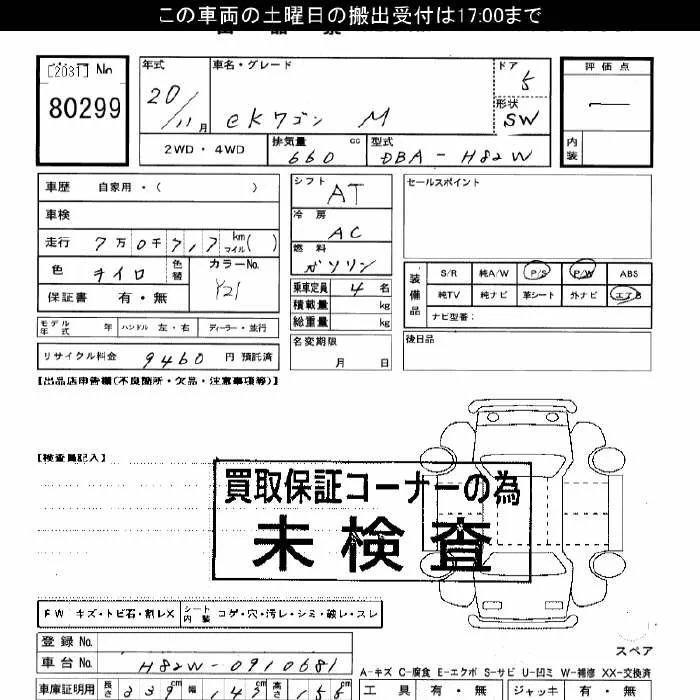 この車両の土曜日の搬出受付は17:00まで
[2031] No
80299
年式 20/11月
車名・グレード eKワゴン M
ドア 5
形状 SW
評価点 —
内装
2WD・4WD
排気量 660 cc
型式 DBA-H82W
車歴 自家用・( )
車検
走行 7万0千717 km マイル( )
色 キイロ 色替 カラーNo. Y21
保証書 有・無
モデル年式 年 ハンドル 左・右 ディーラー・並行
リサイクル料金 9460 円 預託済
シフト AT
冷房 AC
燃料 ガソリン
乗車定員 4 名
積載量 kg
総重量 kg
名変期限 月 日
セールスポイント
装備品
S/R 純A/W P/S P/W ABS
純TV 純ナビ 革シート 外ナビ エアB
ナビ型番:
後日品
【出品店申告欄(不良箇所・欠品・注意事項等)】
【検査員記入】
買取保証コーナーの為
未検査
FW キズ・トビ石・割レX シート内装 コゲ・穴・汚レ・シミ・破レ・スレ
登録No.
車台No. H82W-0910681
車庫証明用 長さ 339cm 幅 147cm 高さ 155cm
スペア
A-キズ C-腐食 E-エクボ S-サビ U-凹ミ W-補修 XX-交換済
工具 有・無 ジャッキ 有・無